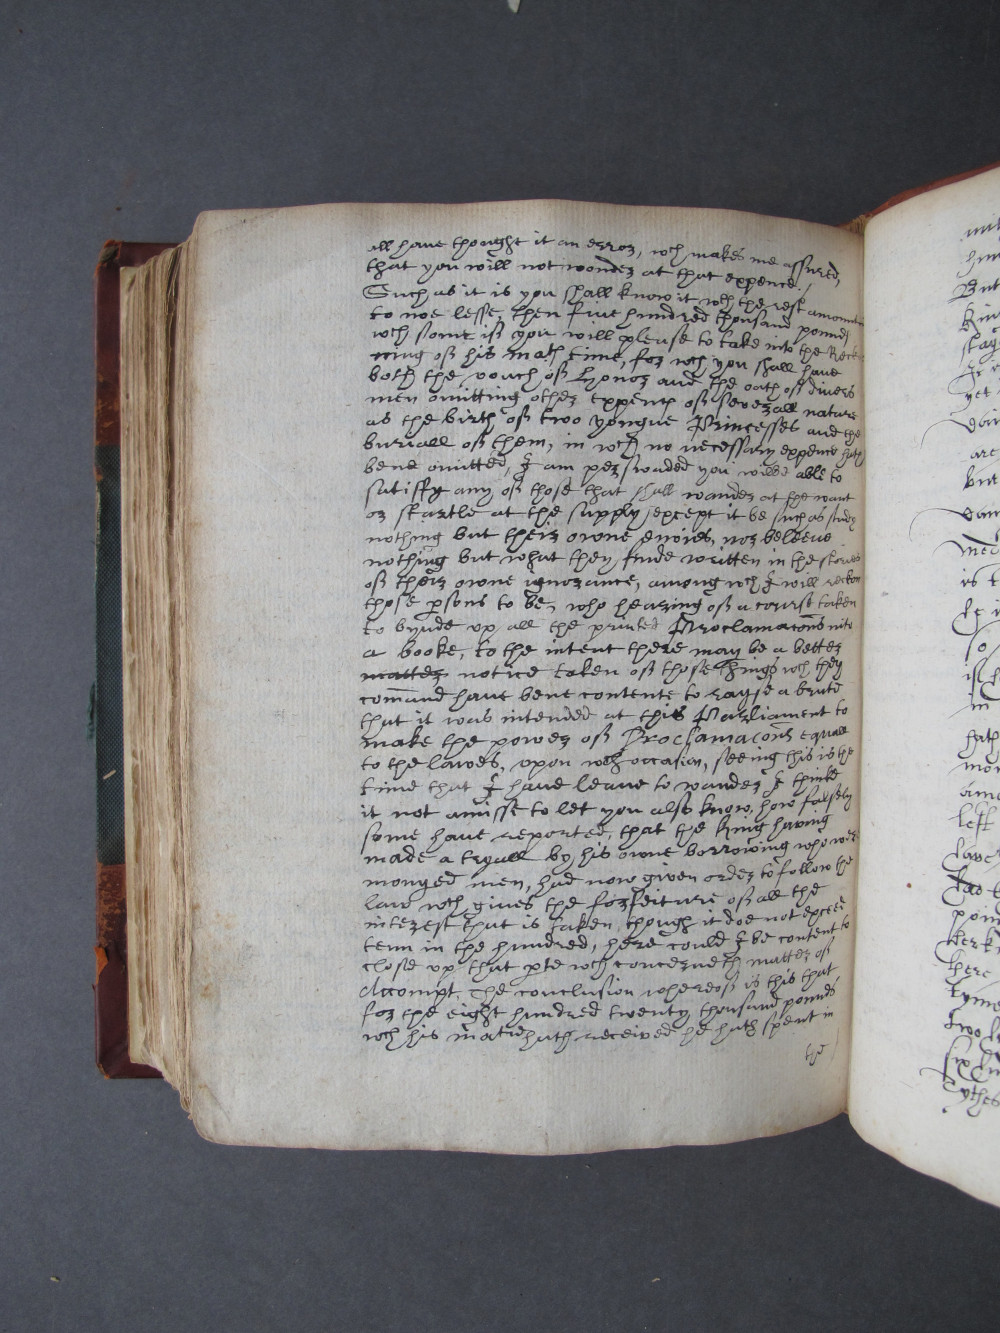 all haue thought it an error, wch makes me assured,
that you will not wonder at that expence.
Such as it is you shall know it wth the rest amountinge
to noe lesse, then fiue hundred thousand pounds
wch some is you will please to take into the Recko
ning of his Maties time, for wch you shall haue
both the vouch of Honor and the oath of divers
men omitting other expence of severall nature
as the birth of two yongue Princesses and the
buriall of them, in wch no necessary expence hath
bene omitted, I am perswaded you wilbe able to
satisfy any of those that shall wonder at the want
or startle at the supply, except it be such as study
nothing but their owne envies, nor beleeue
nothing but what they finde written in the stories
of their owne ignorance, among wch I will reckon
those psons to be, who hearing of a course taken
to bynde vp all the printed Proclamacons into
a booke, to the intent there may be a better
matter notice taken of those things wch they
comand haue bene contente to rayse a brute
that it was intended at this Parliament to
make the power of Proclamacons equall
to the lawes, vpon wch occasion, seeing this is the
time that I haue leaue to wander I thinke
it not amisse to let you also know, how falsely
some haue reported, that the King having
made a tryall by his owne borrowing who were
monyed men, had now given order to follow the
law wch giues the forfeiture of all the
interest that is taken, though it doe not exceed
tenn in the hundred, here could I be content to
close vp that pte wch concerneth matter of
Accompt. The conclusion whereof is this that
for the eight hundred twenty thousand pounds
wch his matie hath received he hath spent in
the